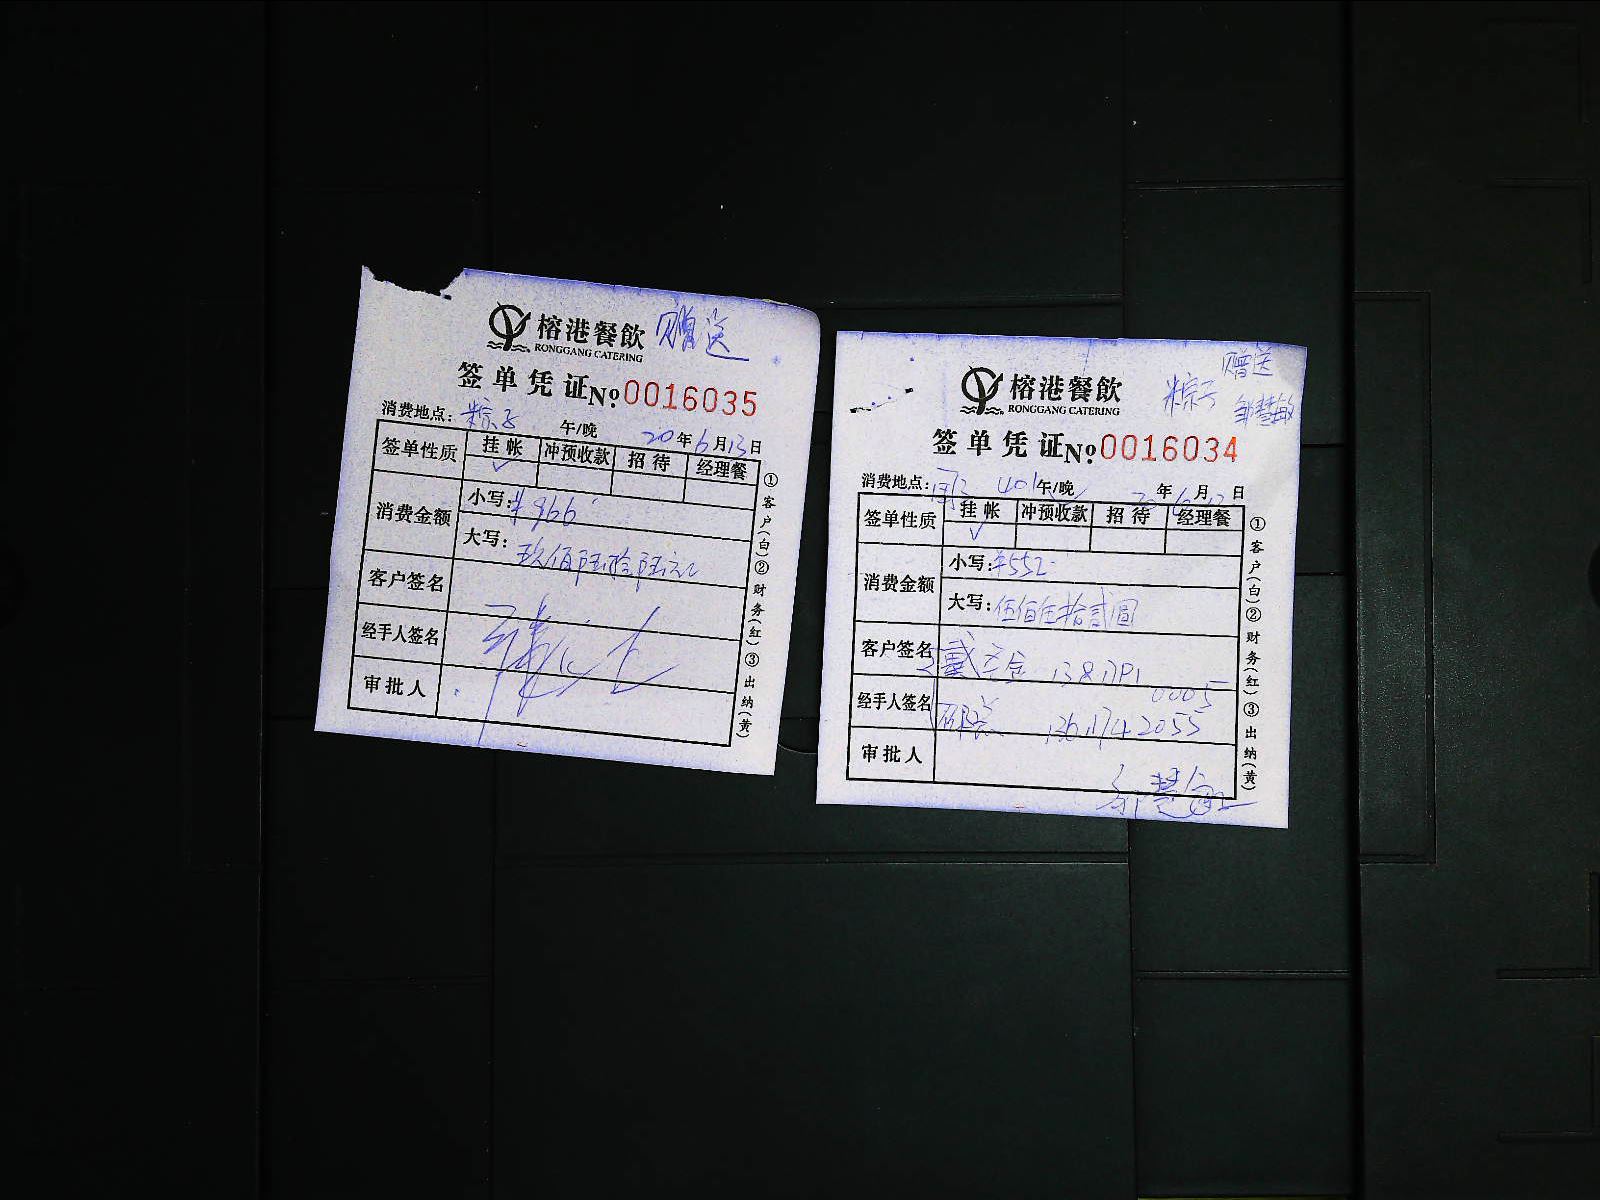 榕港餐飲 赠送
RONGGANG CATERING
签单凭证 №:0016035
消费地点: 粽子 午/晚 20年6月13日
签单性质 挂帐 冲预收款 招待 经理餐
✓
消费金额 小写: ¥966
大写: 玖佰陆拾陆元
客户签名
经手人签名
审批人
①客户(白)②财务(红)③出纳(黄)
赠送
榕港餐飲 粽子 邹慧敏
RONGGANG CATERING
签单凭证 №:0016034
消费地点: 401 午/晚 20年6月12日
签单性质 挂帐 冲预收款 招待 经理餐
✓
消费金额 小写: ¥552
大写: 伍佰伍拾贰圆
客户签名 戴
0005
经手人签名 13611742055
审批人
邹慧敏
①客户(白)②财务(红)③出纳(黄)